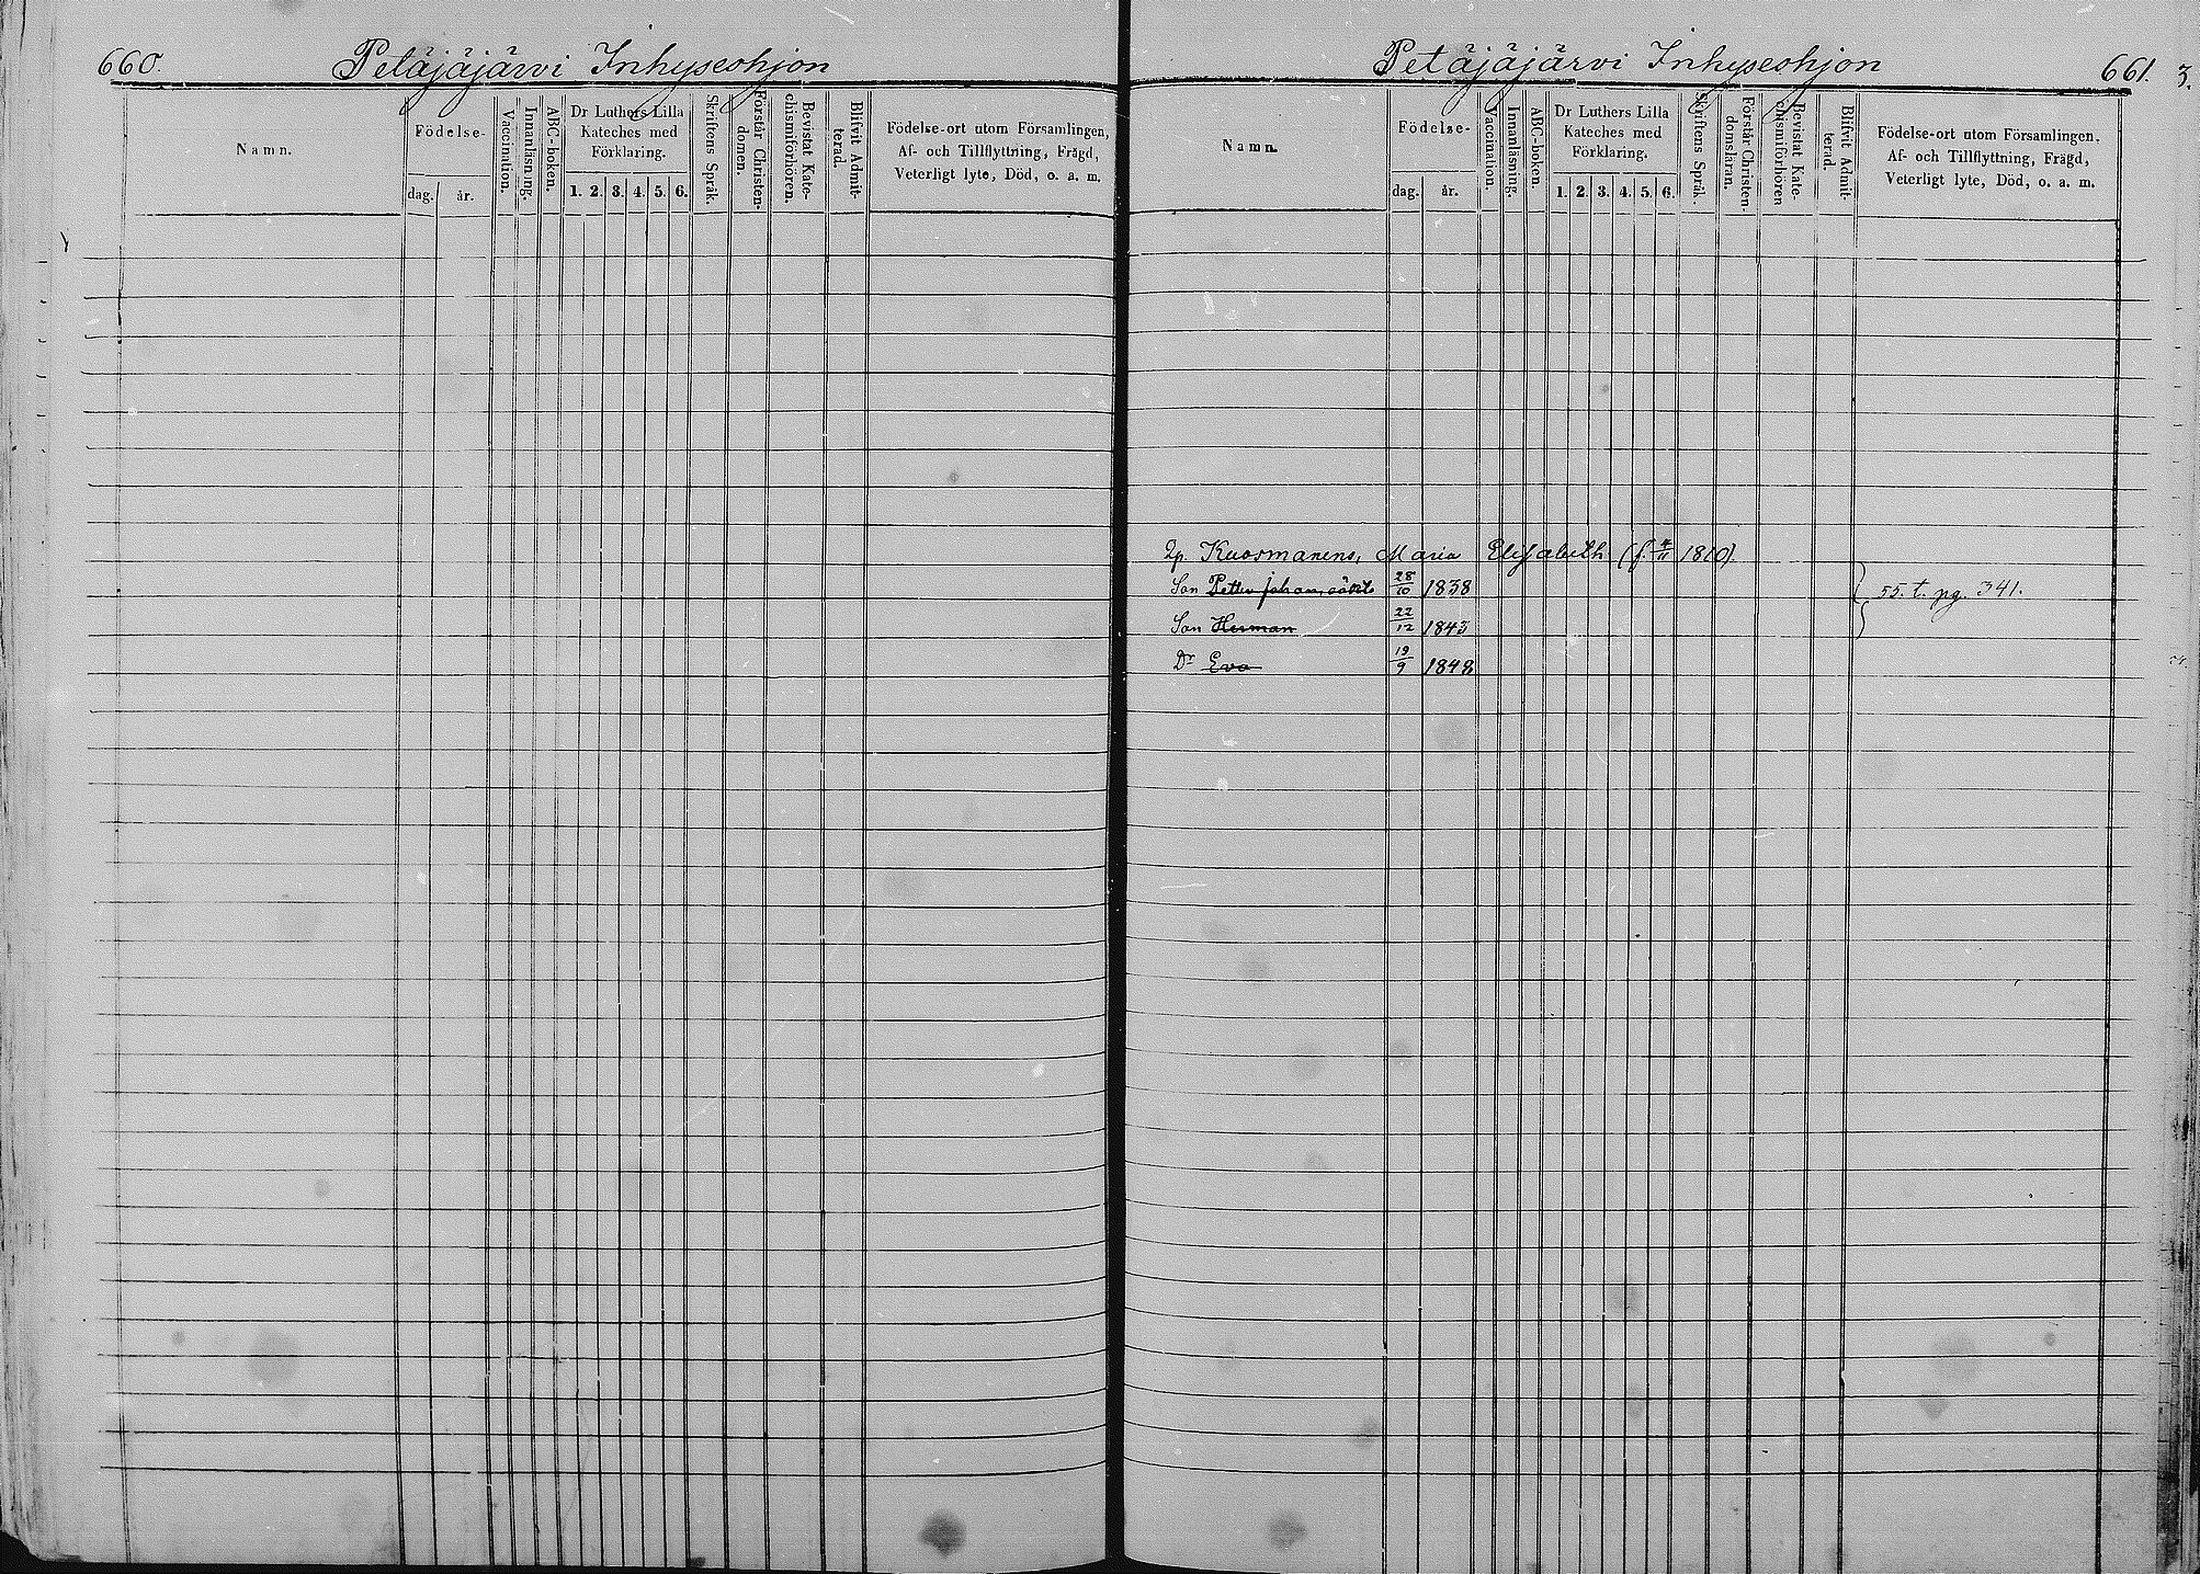 660.
Petäjäjärvi Inhyseshjon
Namn.
Födelse-
dag.
år.
Vaccination.
Innanläsning.
ABC-boken.
Dr Luthers Lilla
Kateches med
Förklaring.
1. 2. 3. 4. 5. 6.
Skriftens Språk.
Förstår Christen-
domen.
Bevistat Kate-
chismiförhören.
Blifvit Admit-
terad.
Födelse-ort utom Församlingen,
Af- och Tillflyttning, Frägd,
Veterligt lyte, Död, o. a. m.
Petäjäjärvi Inhyseshjon
661.
3.
Namn.
Födelse-
dag.
år.
Vaccination.
Innanläsning.
ABC-boken.
Dr Luthers Lilla
Kateches med
Förklaring.
1. 2. 3. 4. 5. 6.
Skriftens Språk.
Förstår Christen-
domsläran.
Bevistat Kate-
chismiförhören
Blifvit Admit-
terad.
Födelse-ort utom Församlingen.
Af- och Tillflyttning, Frägd,
Veterligt lyte, Död, o. a. m.
Kuosmanens, Maria Elisabeth (f. 1810)
Son Petter Johan 28/10 1838
55. t. pg. 341.
Son Herman 22/12 1843
Dr Eva 19/9 1848